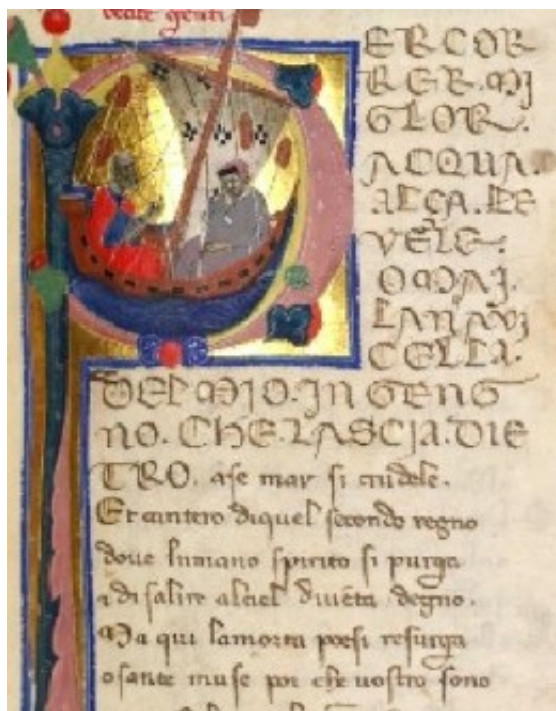 beate genti
ER COR
RER. MJ
GLOR.
ACQUA.
ALÇA. LE
VELE.
OMAJ.
LA NAVI
CELLA.
DEL MIO. JN GENG
NO. CHE. LASCJA. DIE
TRO. ase mar si crudele.
Et cantero diquel secondo regno
doue lumano spirito si purga
a di salire alciel diuēta degno.
Ma qui lamorta poesi resurga
o sante muse poi che uostro sono